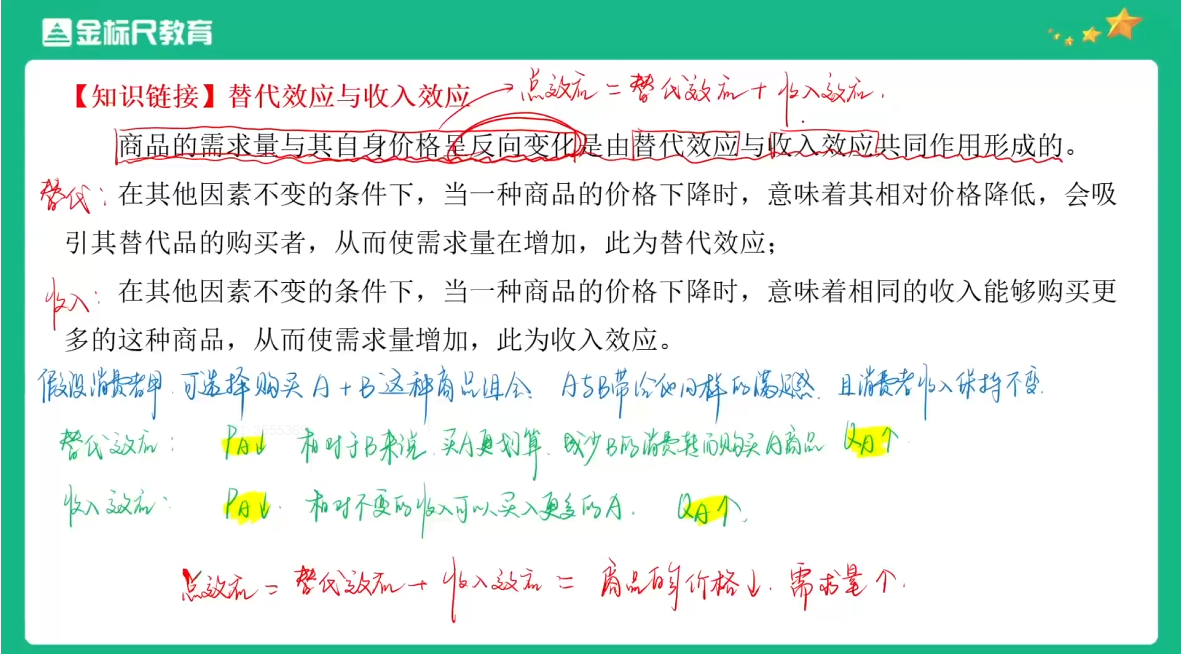 金标尺教育
【知识链接】替代效应与收入效应 → 总效应 = 替代效应 + 收入效应.
商品的需求量与其自身价格呈反向变化是由替代效应与收入效应共同作用形成的。
替代: 在其他因素不变的条件下，当一种商品的价格下降时，意味着其相对价格降低，会吸
引其替代品的购买者，从而使需求量在增加，此为替代效应；
收入: 在其他因素不变的条件下，当一种商品的价格下降时，意味着相同的收入能够购买更
多的这种商品，从而使需求量增加，此为收入效应。
假设消费者甲.可选择购买A+B这种商品组合. A与B带给他同样的满足感.且消费者收入保持不变.
替代效应: PA↓ 相对于B来说.买A更划算.减少B的消费转而购买A商品 QA↑
收入效应: PA↓. 相对不变的收入可以买入更多的A. QA↑.
总效应 = 替代效应 + 收入效应 = 商品的价格↓.需求量↑.